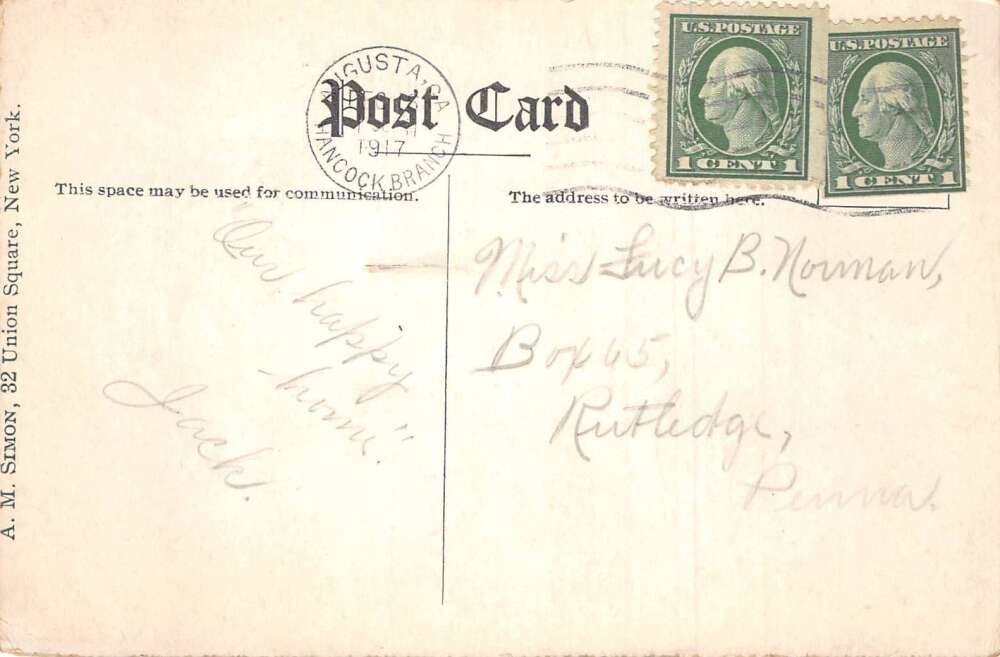 A. M. SIMON, 32 Union Square, New York.
AUGUSTA, GA.
1917
HANCOCK BRANCH
Post Card
U.S. POSTAGE
1 CENT 1
U.S. POSTAGE
1 CENT 1
This space may be used for communication.
The address to be written here.
"Our happy
-home".
Jack.
Miss Lucy B. Norman,
Box 65,
Rutledge,
Penna.